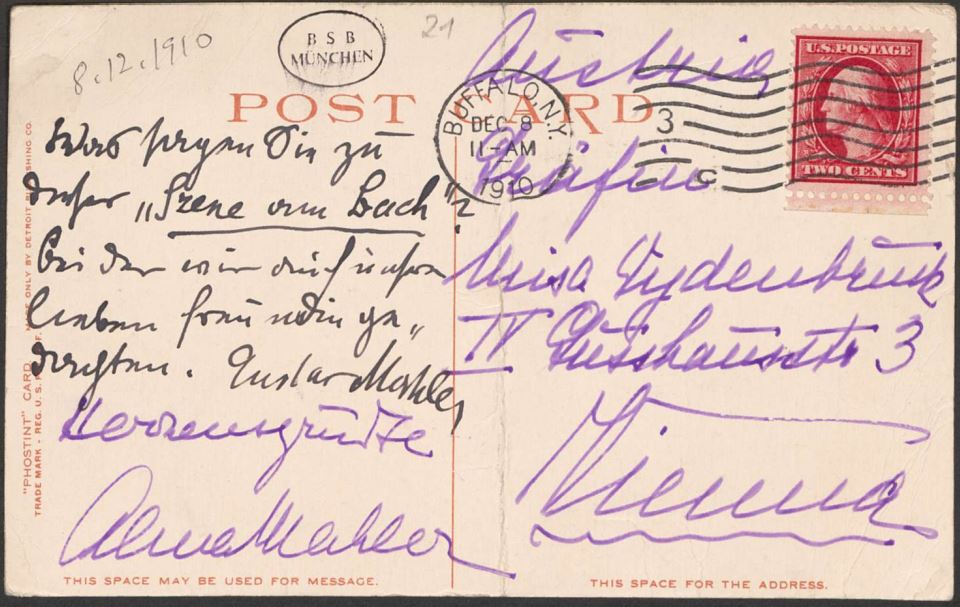 8.12.1910
B S B
MÜNCHEN
21
POST CARD
Was sagen Sie zu
dieser „Szene am Bach"?
bei der wir auch unsrer
lieben Freundin ge„
dachten. Gustav Mahler
Herzensgrüße
Alma Mahler
THIS SPACE MAY BE USED FOR MESSAGE.
"PHOSTINT" CARD
TRADE MARK - REG. U. S.
MADE ONLY BY DETROIT PUBLISHING CO.
BUFFALO, N.Y.
DEC 8
11-AM
1910
3
C
U.S. POSTAGE
TWO CENTS
Austria
Gräfin
Misa Wydenbruck
IV Gusshausstr 3
Vienna
THIS SPACE FOR THE ADDRESS.